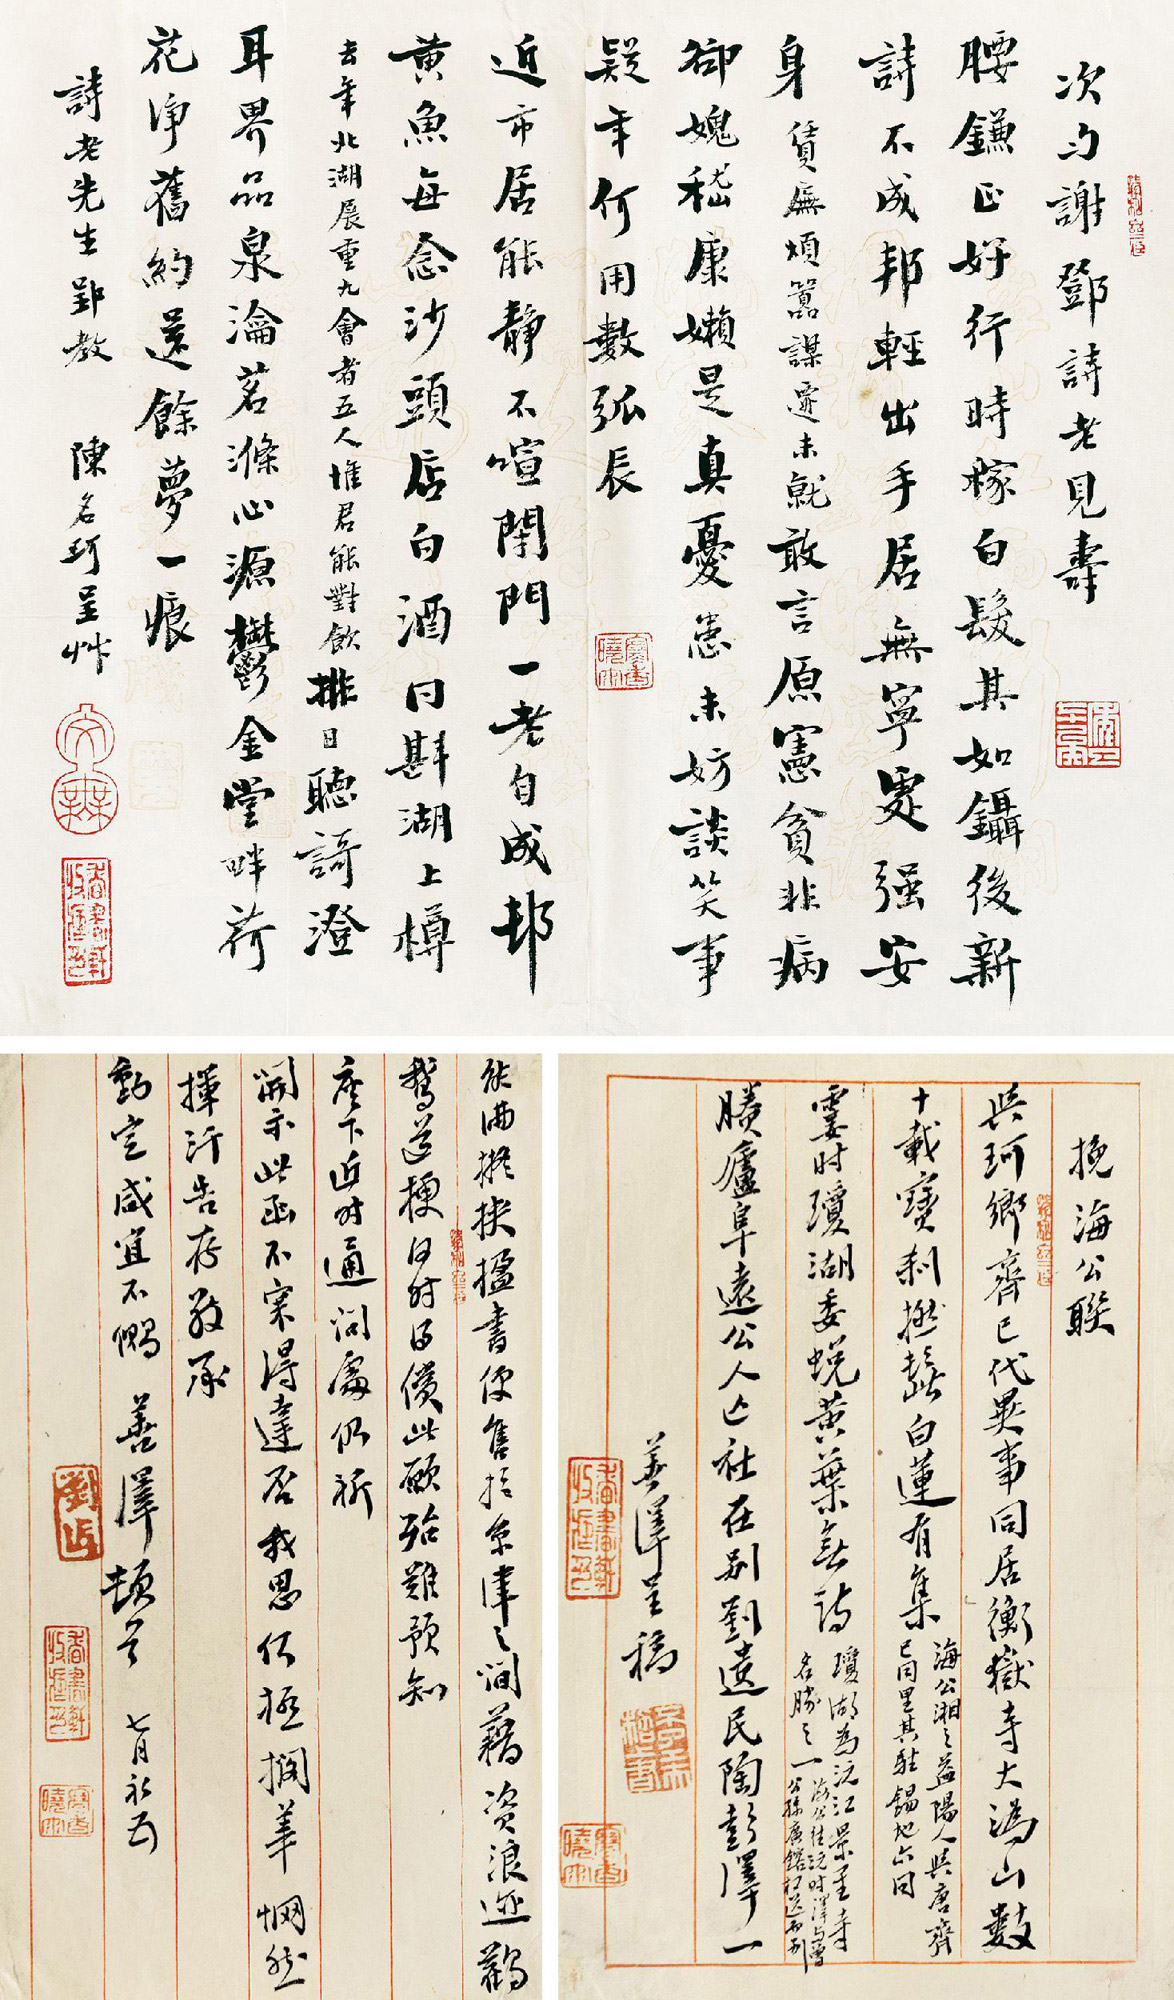 次勻謝鄧詩老見壽
腰鎌正好行時稼白髮其如鑷後新
詩不成邦輕出手居無寧處强安
身賃廡煩囂謀遷未就敢言原憲貧非病
卻媿嵇康嬾是真憂患未妨談笑事
疑年何用數弧辰
近市居能靜不喧閉門一老自成邨
黄魚每念沙頭店白酒同斟湖上樽
去年北湖展重九會者五人惟君能對飲排日聽謌澄
耳界品泉瀹茗滌心源鬱金堂畔荷
花淨舊約還餘夢一痕
詩老先生郢教 陳名珂呈艸
挽海公聯
與珂鄉齊己代異事同居衡嶽寺大溈山數
十載寶刹撚髭白蓮有集海公湘之益陽人與唐齊
己同里其駐錫地亦同
霎時瓊湖委蛻黄葉無詩瓊湖為沅江景星寺
名勝之一海公住沅時澤與曾
公孫廣鎔
賸廬阜遠公人亡社在别劉遺民陶彭澤一
善澤呈稿
能曲撥挾楹書便售於京津之間藉資浪遊鸛
鵞道梗何時得償此願殆難預知
座下近时通問處仍祈
開示此函不宷得達否我思伊極擱筆惘然
揮汗告存敬承
動定咸宜不惘 善澤頓首 七月初五